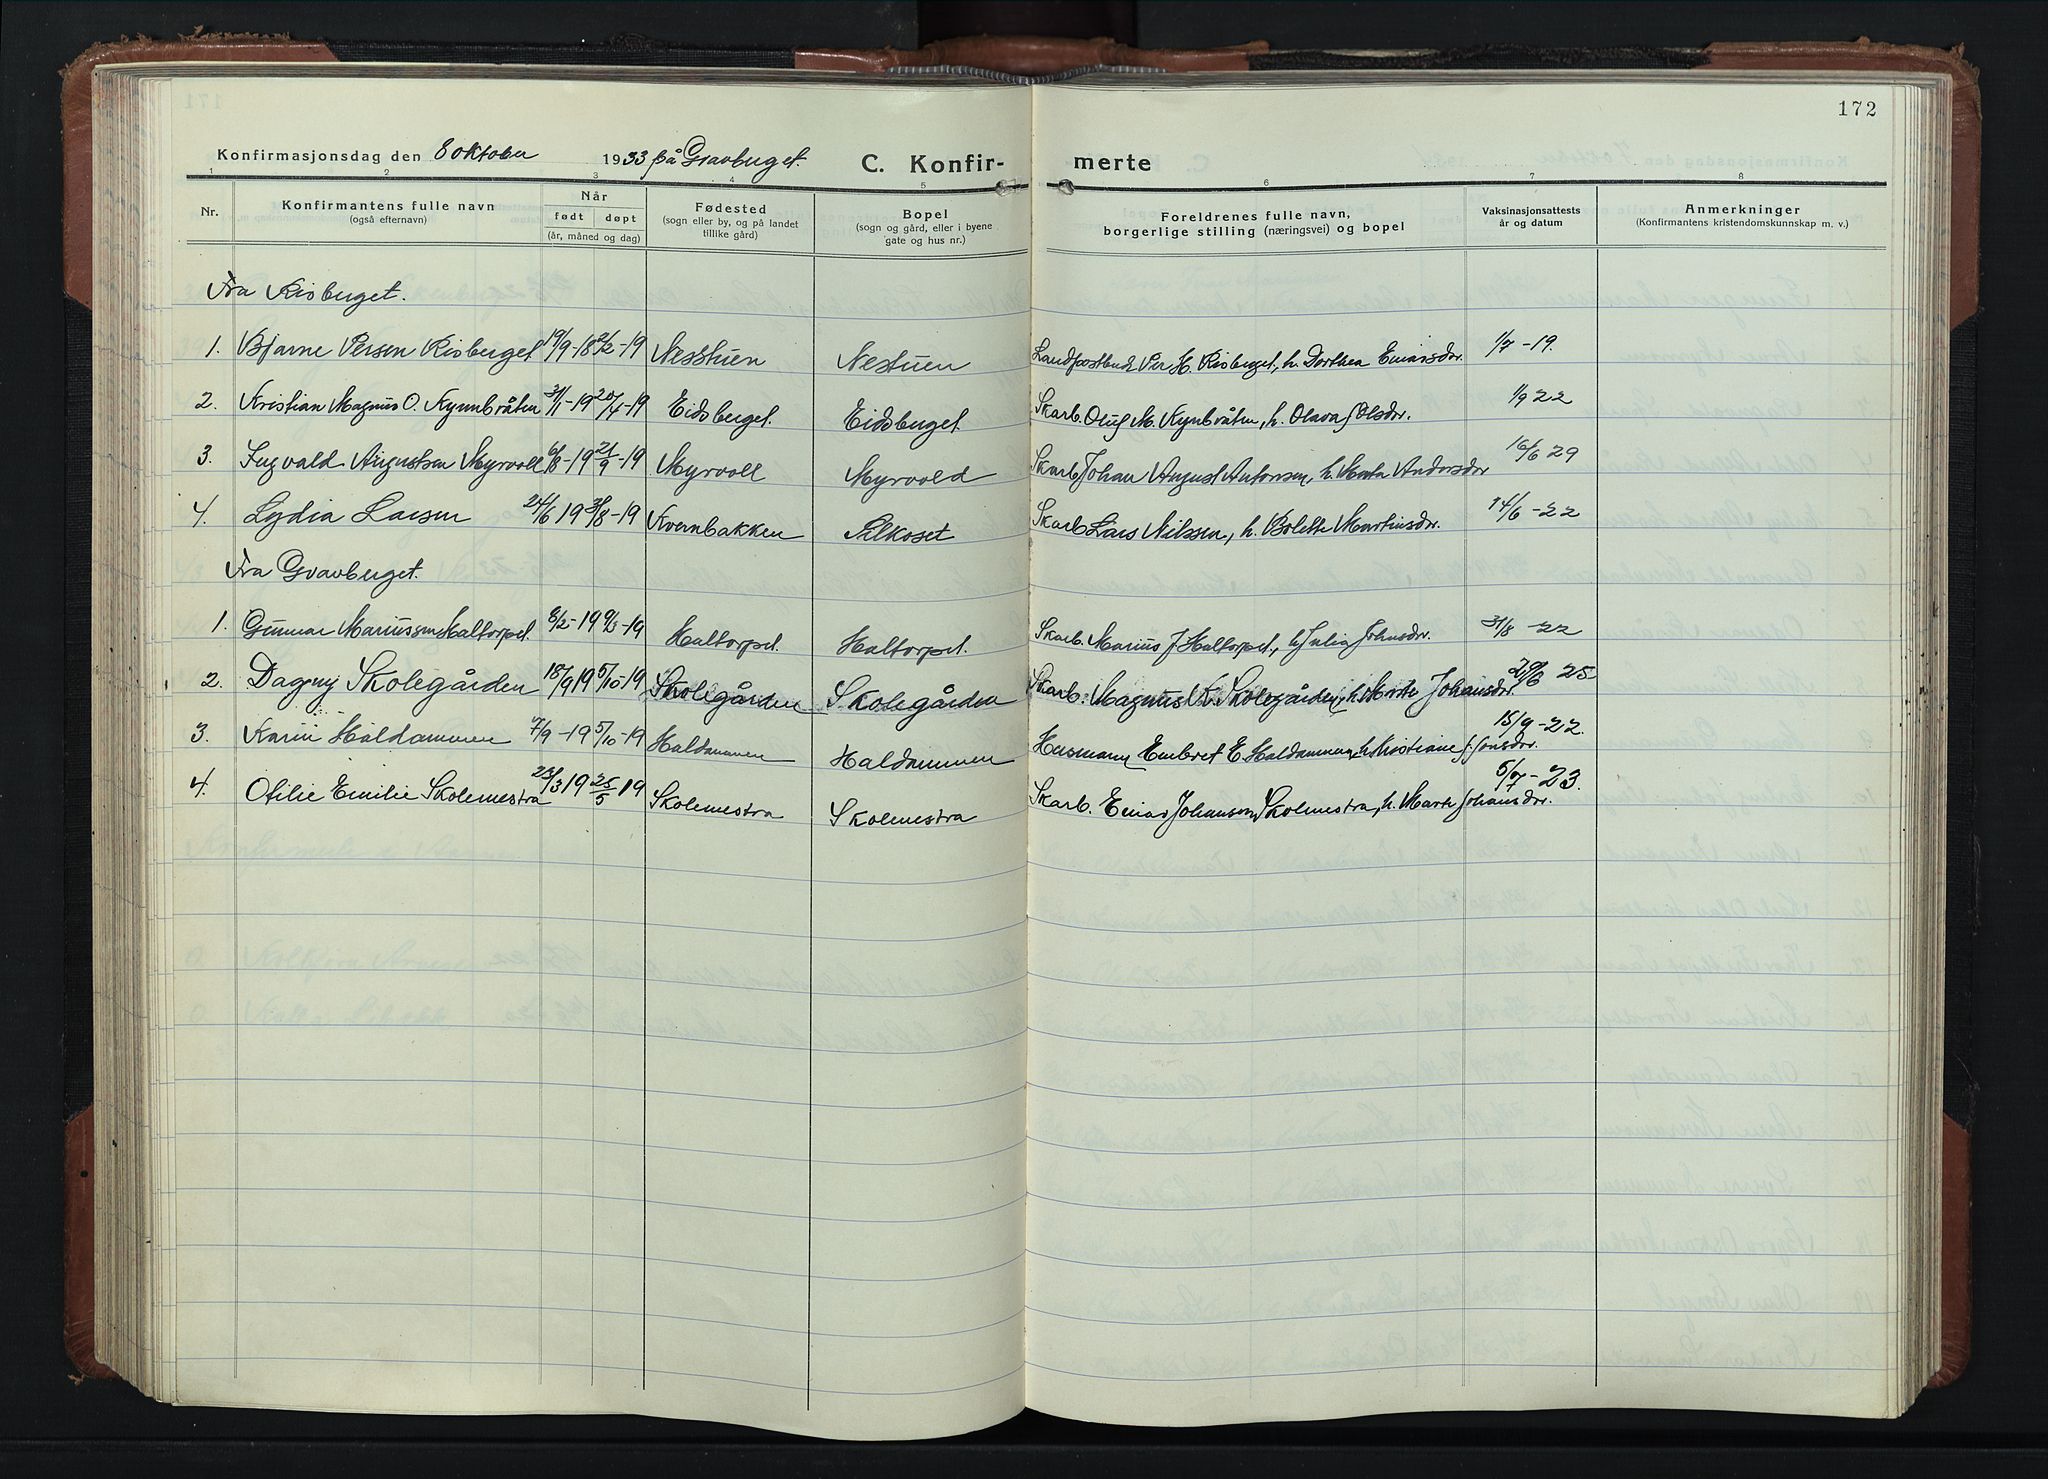 172
Konfirmasjonsdag den 8 oktober 1933 på Gravberget. C. Konfir- merte
1 2 3 4 5 6 7 8
Nr. Konfirmantens fulle navn (også efternavn) Når født døpt (år, måned og dag) Fødested (sogn eller by, og på landet tillike gård) Bopel (sogn og gård, eller i byene gate og hus nr.) Foreldrenes fulle navn, borgerlige stilling (næringsvei) og bopel Vaksinasjonsattests år og datum Anmerkninger (Konfirmantens kristendomskunnskap m. v.)
Fra Risberget.
1. Bjarne Persen Risberget 19/9-18 2/2-19 Nesstuen Nestuen Landpostbud Per H. Risberget, h. Dorthea Einarsdr. 1/7-19.
2. Kristian Magnus O. Kynnbråten 31/1-19 20/4-19 Eidsberget. Eidsberget Skarb. Oluf M. Kynbråten, h. Olava Olsdr. 1/9 22
3. Ingvald Augustsen Myrvoll 6/8-19 21/9-19 Myrvoll Myrvold Skarb Johan August Antonsen, h. Marta Andersdr 16/6 29
4. Lydia Larsen 24/6 19 31/8-19 Kvernbakken Silkoset Skarb Lars Nilssen, h. Bolette Martinsdr. 14/6-22
Fra Gravberget.
1. Gunnar Mariussen Haltorpet. 8/2-19 9/3-19 Haltorpet. Haltorpet. Skarb. Marius J Haltorpet, h Julia Johansdr. 31/8-22
2. Dagny Skolegården 18/9 19 5/10-19 Skolegården Skolegården Skarb. Magnus K. Skolegården, h. Marte Johansdr. 29/6 25
3. Karin Haldammen 7/9-19 5/10-19 Haldammen Haldammen Husmann Embret E. Haldammen, h. Kristiane J. Jonsdr. 15/9-22.
4. Otilie Emilie Skolemestra 23/3 19 25/5 19 Skolemestra Skolemestra Skarb. Einar Johansen Skolmestra, h. Marte Johansdr. 5/7-23.